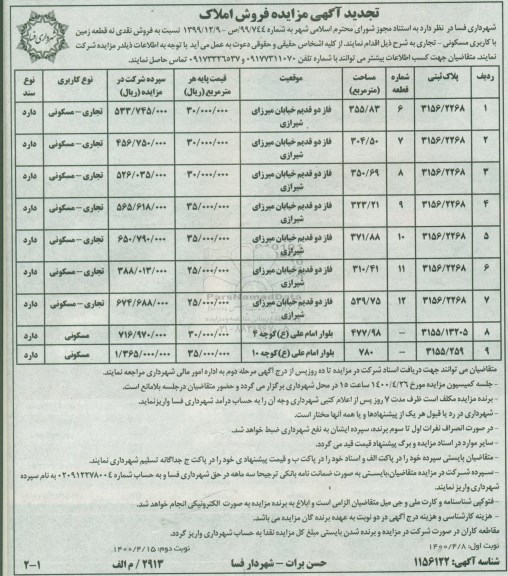 تجدید آگهی مزایده فروش املاک
شهرداری فسا
شهرداری فسا در نظر دارد به استناد مجوز شورای محترم اسلامی شهر به شماره ۹۹/۷۴۴/ص - ۱۳۹۹/۱۲/۹ نسبت به فروش نقدی نه قطعه زمین
با کاربری مسکونی - تجاری به شرح ذیل اقدام نمایند. از کلیه اشخاص حقیقی و حقوقی دعوت به عمل می آید با توجه به اطلاعات ذیل در مزایده شرکت
نمایند. متقاضیان جهت کسب اطلاعات بیشتر می توانند با شماره تلفن ۰۹۱۷۷۳۱۱۰۷۰ و ۰۹۱۷۳۳۲۶۵۳۷ تماس حاصل نمایند.
ردیف پلاک ثبتی شماره قطعه مساحت (مترمربع) موقعیت قیمت پایه هر مترمربع (ریال) سپرده شرکت در مزایده (ریال) نوع کاربری نوع سند
۱ ۳۱۵۶/۲۲۶۸ ۶ ۳۵۵/۸۳ فاز دو قدیم خیابان میرزای شیرازی ۳۰/۰۰۰/۰۰۰ ۵۳۳/۷۴۵/۰۰۰ تجاری - مسکونی دارد
۲ ۳۱۵۶/۲۲۶۸ ۷ ۳۰۴/۵۰ فاز دو قدیم خیابان میرزای شیرازی ۳۰/۰۰۰/۰۰۰ ۴۵۶/۷۵۰/۰۰۰ تجاری - مسکونی دارد
۳ ۳۱۵۶/۲۲۶۸ ۸ ۳۵۰/۶۹ فاز دو قدیم خیابان میرزای شیرازی ۳۰/۰۰۰/۰۰۰ ۵۲۶/۰۳۵/۰۰۰ تجاری - مسکونی دارد
۴ ۳۱۵۶/۲۲۶۸ ۹ ۳۲۳/۲۱ فاز دو قدیم خیابان میرزای شیرازی ۳۵/۰۰۰/۰۰۰ ۵۶۵/۶۱۸/۰۰۰ تجاری - مسکونی دارد
۵ ۳۱۵۶/۲۲۶۸ ۱۰ ۳۷۱/۸۸ فاز دو قدیم خیابان میرزای شیرازی ۳۵/۰۰۰/۰۰۰ ۶۵۰/۷۹۰/۰۰۰ تجاری - مسکونی دارد
۶ ۳۱۵۶/۲۲۶۸ ۱۱ ۳۱۰/۴۱ فاز دو قدیم خیابان میرزای شیرازی ۲۵/۰۰۰/۰۰۰ ۳۸۸/۰۱۳/۰۰۰ تجاری - مسکونی دارد
۷ ۳۱۵۶/۲۲۶۸ ۱۲ ۵۳۹/۷۵ فاز دو قدیم خیابان میرزای شیرازی ۲۵/۰۰۰/۰۰۰ ۶۷۴/۶۸۸/۰۰۰ تجاری - مسکونی دارد
۸ ۳۱۵۵/۱۳۲۰۵ - ۴۷۷/۹۸ بلوار امام علی (ع) کوچه ۴ ۳۰/۰۰۰/۰۰۰ ۷۱۶/۹۷۰/۰۰۰ مسکونی دارد
۹ ۳۱۵۵/۲۵۹ - ۷۸۰ بلوار امام علی (ع) کوچه ۱۰ ۳۵/۰۰۰/۰۰۰ ۱/۳۶۵/۰۰۰/۰۰۰ مسکونی دارد
متقاضیان می توانند جهت دریافت اسناد شرکت در مزایده تا ده روز پس از درج آگهی مرحله دوم به اداره امور مالی شهرداری مراجعه نمایند.
- جلسه کمیسیون مزایده مورخ ۱۴۰۰/۴/۲۶ ساعت ۱۵ در محل شهرداری برگزار می گردد و حضور متقاضیان در جلسه بلامانع است.
- برنده مزایده مکلف است ظرف مدت ۷ روز پس از اعلام کتبی شهرداری وجه آن را به حساب درآمد شهرداری فسا واریز نماید.
- شهرداری در رد یا قبول هر یک از پیشنهادها و یا همه آنها مختار است.
- در صورت انصراف نفرات اول تا سوم برنده، سپرده ایشان به نفع شهرداری ضبط خواهد شد.
- سایر موارد در اسناد مزایده و برگ پیشنهاد قیمت قید می گردد.
- متقاضیان بایستی سپرده خود را در پاکت الف و اسناد خود را در پاکت ب و قیمت پیشنهادی خود را در پاکت ج جداگانه تسلیم شهرداری نمایند.
- سپرده شرکت در مزایده متقاضیان، بایستی به صورت ضمانت نامه بانکی ترجیحا سه ماهه در حق شهرداری فسا و به حساب شماره ۰۲۰۹۱۲۲۷۸۰۰۴ به نام سپرده
شهرداری واریز نمایند.
- فتوکپی شناسنامه و کارت ملی و جی میل متقاضیان الزامی است و ابلاغ به برنده مزایده به صورت الکترونیکی انجام خواهد شد.
- هزینه کارشناسی و هزینه درج آگهی در دو نوبت به عهده برنده کان مزایده می باشد.
مقاطعه کاران در صورت شرکت در مزایده و برنده شدن بایستی مبلغ کل مزایده نقدا به حساب درآمدی شهرداری واریز گردد.
نوبت اول: ۱۴۰۰/۴/۸ نوبت دوم: ۱۴۰۰/۴/۱۵
شناسه آگهی: ۱۱۵۶۱۲۲ حسن برات - شهردار فسا ۲۹۱۳ / م الف ۲-۱